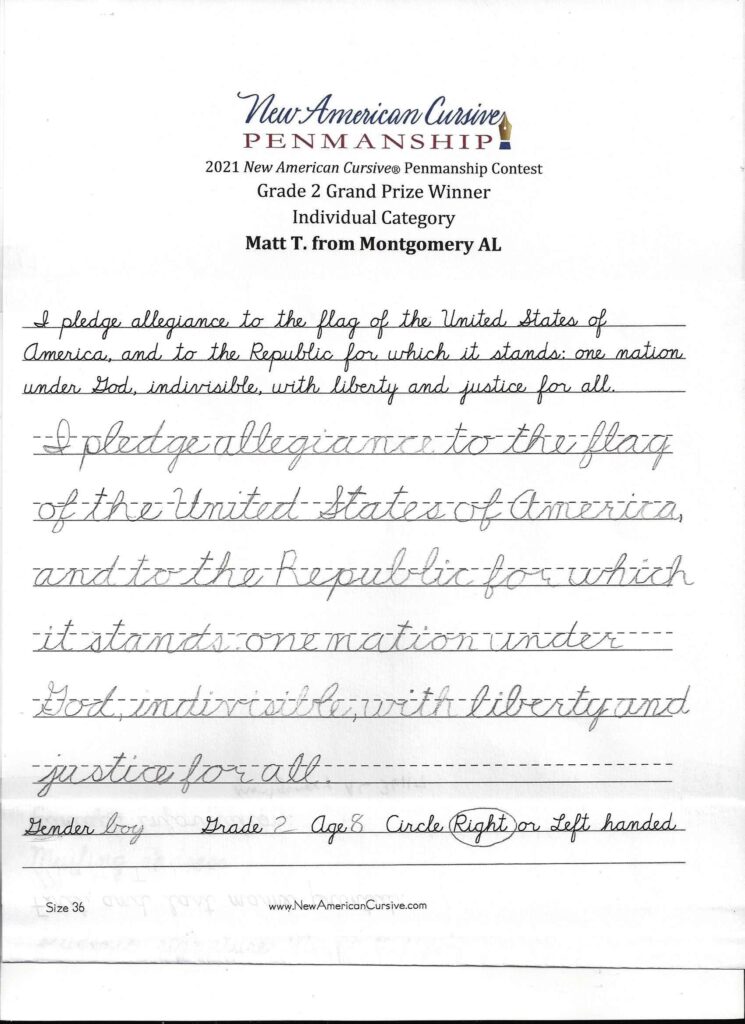 New American Cursive
PENMANSHIP
2021 New American Cursive® Penmanship Contest
Grade 2 Grand Prize Winner
Individual Category
Matt T. from Montgomery AL
I pledge allegiance to the flag of the United States of
America, and to the Republic for which it stands: one nation
under God, indivisible, with liberty and justice for all.
I pledge allegiance to the flag
of the United States of America,
and to the Republic for which
it stands: one nation under
God, indivisible, with liberty and
justice for all.
Gender boy Grade 2 Age 8 Circle Right or Left handed
Size 36 www.NewAmericanCursive.com